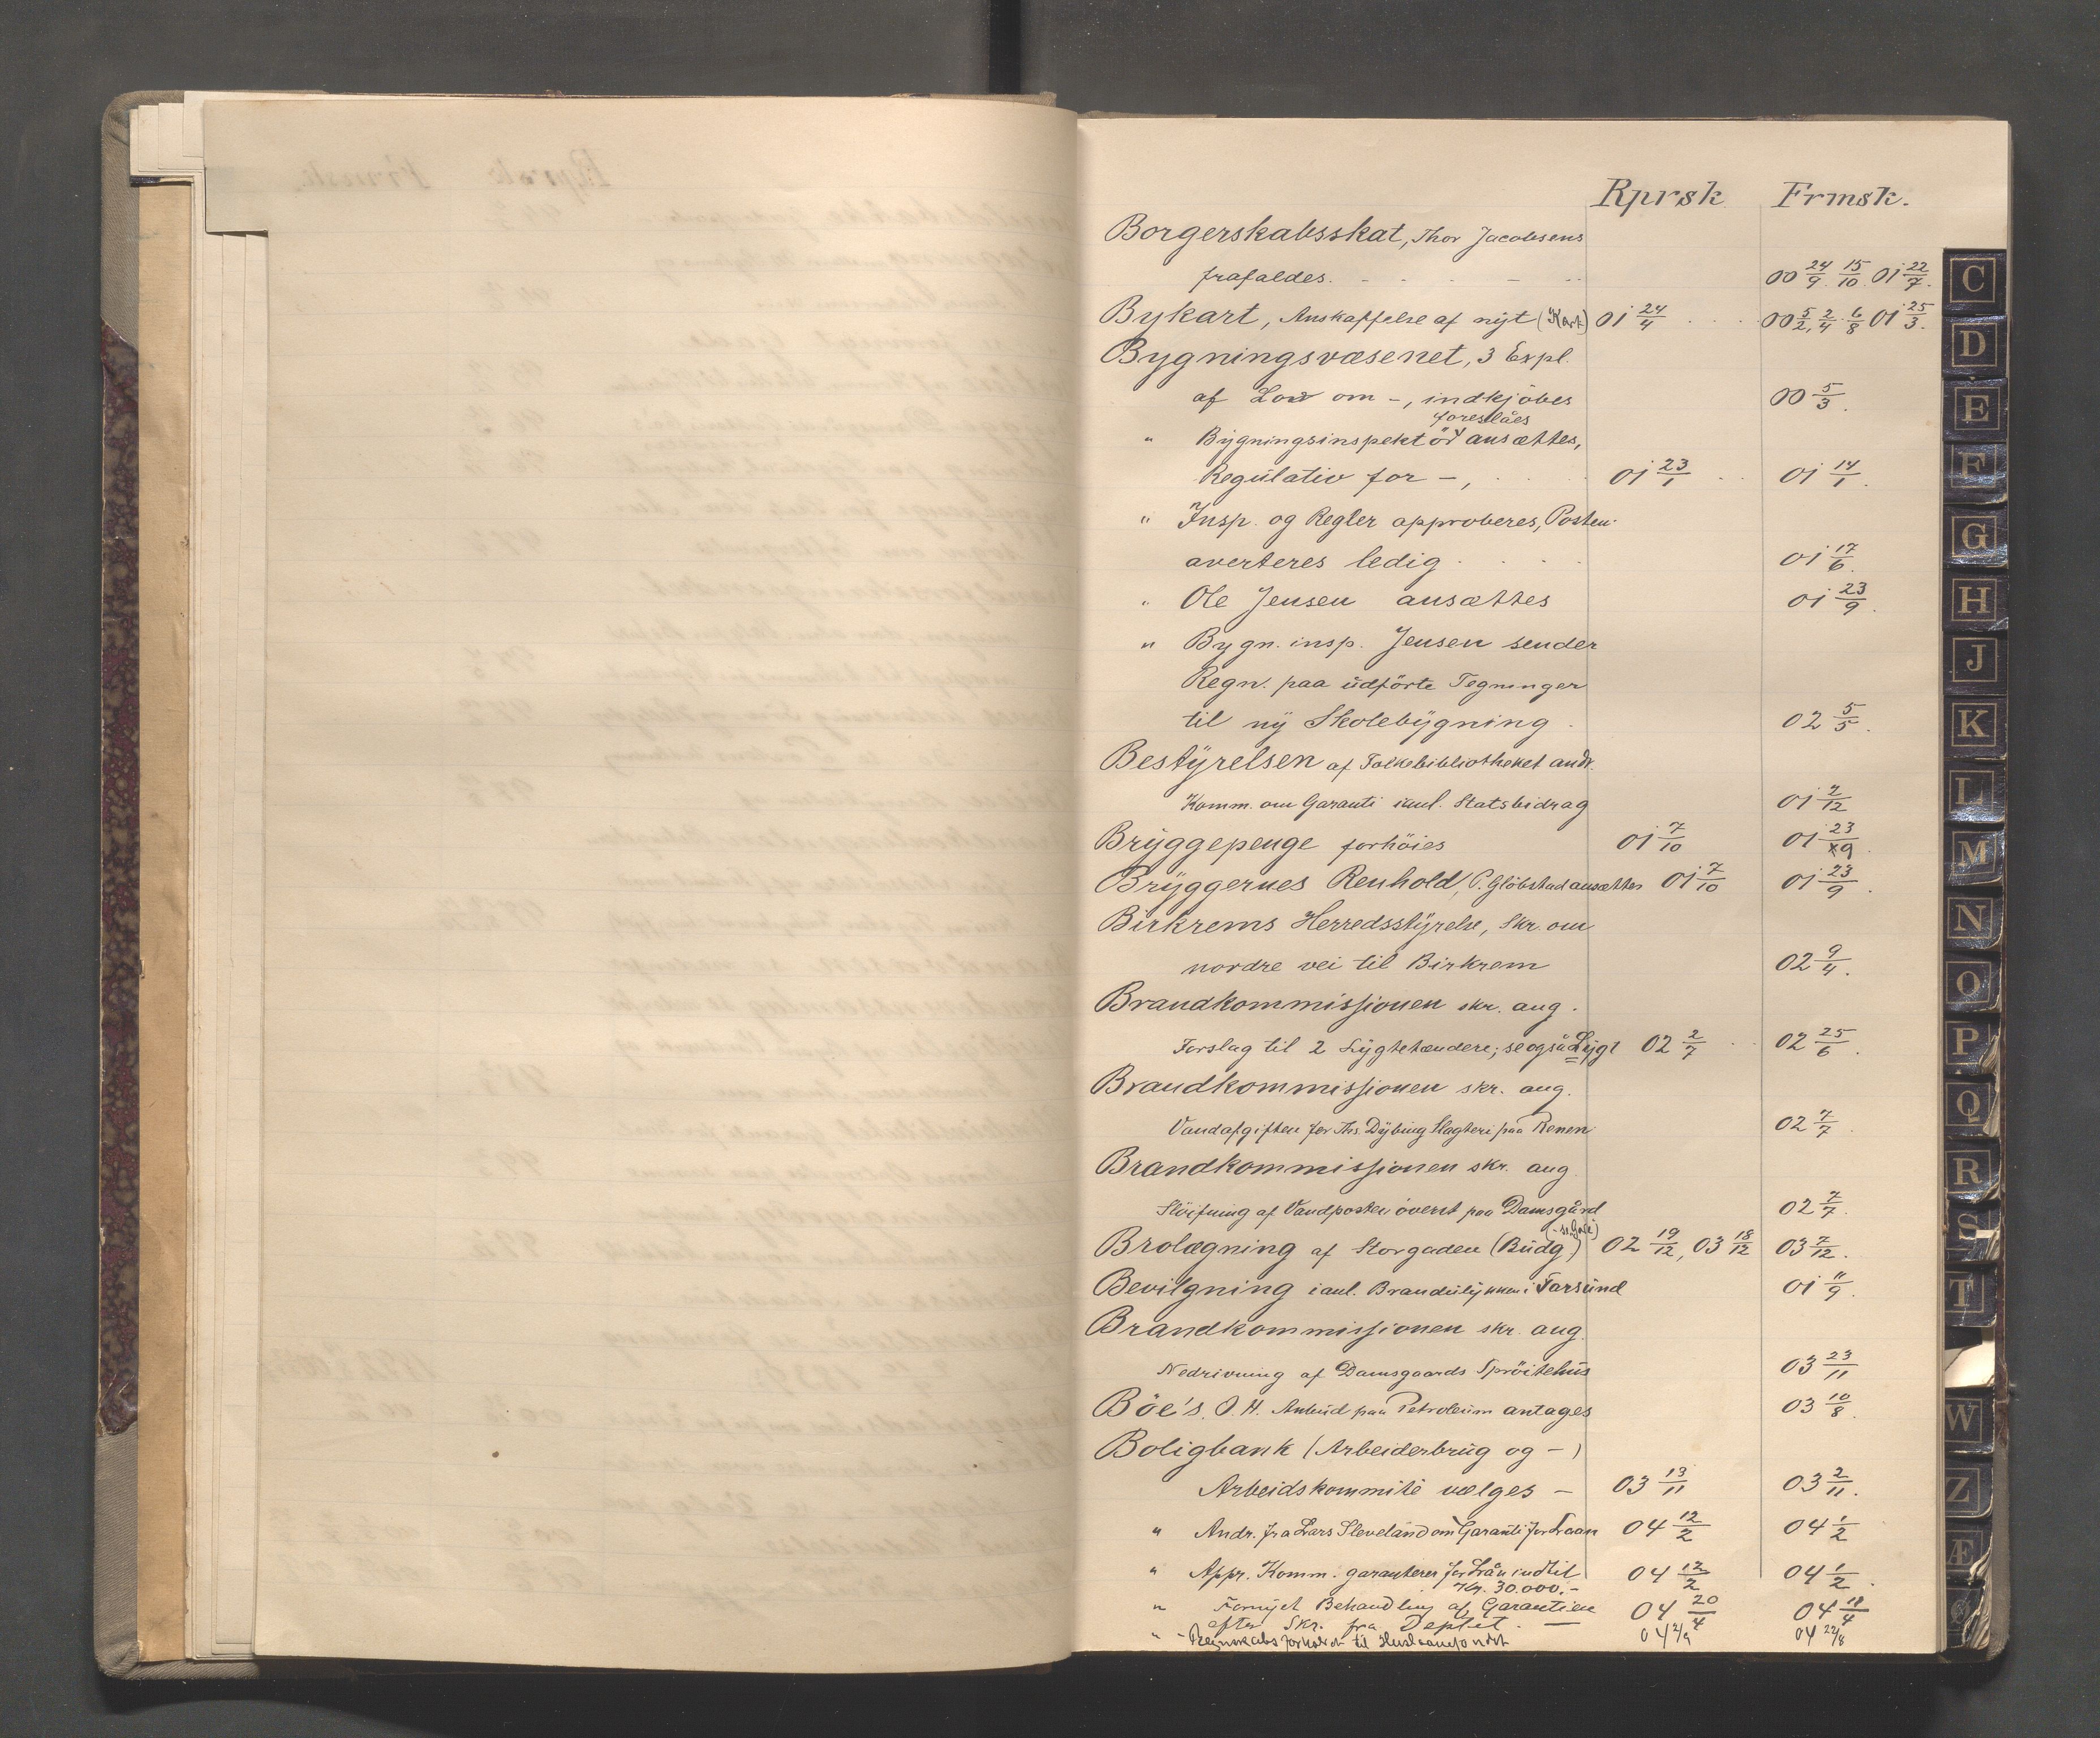 Rprsk Frmsk.
Borgerskabsskat, Thor Jacobsens
frafaldes. 00 24/9 15/10 01 22/7.
Bykart, Anskaffelse af nÿt (Kart) 01 24/4 00 5/2, 2/4 6/8 01 25/3.
Bygningsvæsenet, 3 Expl.
af Lov om -, indkjöbes 00 5/3.
foreslåes
" Bÿgningsinspektör ansættes,
Regulativ for -, 01 23/1 01 14/1.
" Insp. og Regler approberes, Posten
averteres ledig 01 17/6.
" Ole Jensen ansættes 01 23/9.
" Bygn. insp. Jensen sender
Regn. paa üdförte Tegninger
til nÿ Skolebÿgning 02 5/5.
Bestÿrelsen af Folkebibliotheket andr.
Komm. om Garanti ianl. Statsbidrag 01 2/12
Brÿggepenge forhöies 01 7/10 01 23/9.
Brÿggernes Renhold, P. Glöbstad ansættes 01 7/10 01 23/9.
Birkrems Herredsstÿrelse, Skr. om
nordre vei til Birkrem 02 9/4.
Brandkommissionen skr. ang.
Forslag til 2 Lÿgtetændere; se også Lÿgt 02 2/7 02 25/6.
Brandkommissionen skr. ang.
Vandafgiften for Ths. Dÿbing Slagteri paa Renen 02 7/7.
Brandkommissionen skr. ang.
Slöifning af Vandposten överst paa Damsgård 02 7/7.
Brolægning af Storgaden (Büdg.) 02 19/12, 03 18/12 03 7/12.
Bevilgning ianl. Brandülÿkken i Farsünd 01 11/9.
Brandkommissionen skr. ang.
Nedrivning af Damsgaards Spröitehüs 03 23/11
Böe's, O. H. Anbud paa Petroleüm antages 03 10/8.
Boligbank (Arbeiderbrüg og -)
Arbeidskommité vælges - 03 13/11 03 2/11.
" Andr. fra Lars Sleveland om Garanti for Laan 04 12/2 04 1/2
" Appr. Komm. garanterer for Lån indtil 04 12/2 04 1/2.
Kr. 30.000.-
" Fornÿet Behandling af Garantien 04 20/4 04 18/4
efter Skr. fra Deptet. -
" Regnskabsforholdet til 04 2/9 04 22/8
C
D
E
F
G
H
J
K
L
M
N
O
P
Q
R
S
T
W
Z
Æ
Ø